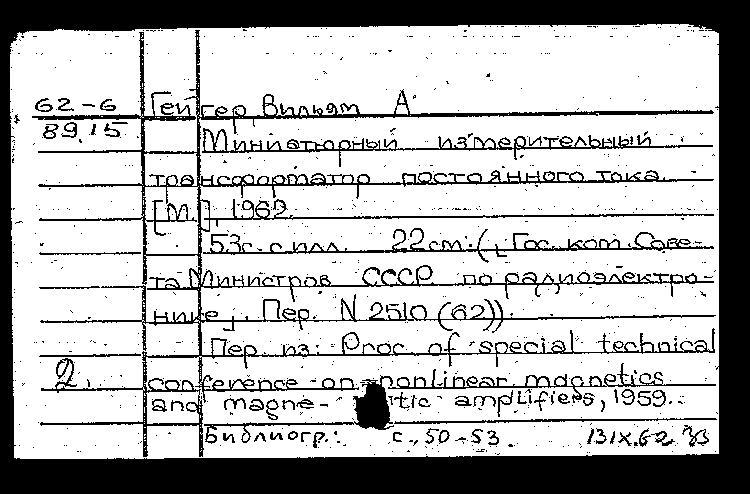 62-6 Гейгер, Вильям А.
89.15 Миниатюрный измерительный
трансформатор постоянного тока.
[М.], 1962.
53с. с илл. 22см. (Гос. ком. Сове-
та Министров СССР по радиоэлектро-
нике. Пер. N 2510 (62)).
Пер. из: Proc. of special technical
2. conference on nonlinear magnetics
and magne- tic amplifiers, 1959.
Библиогр.: с. 50-53.